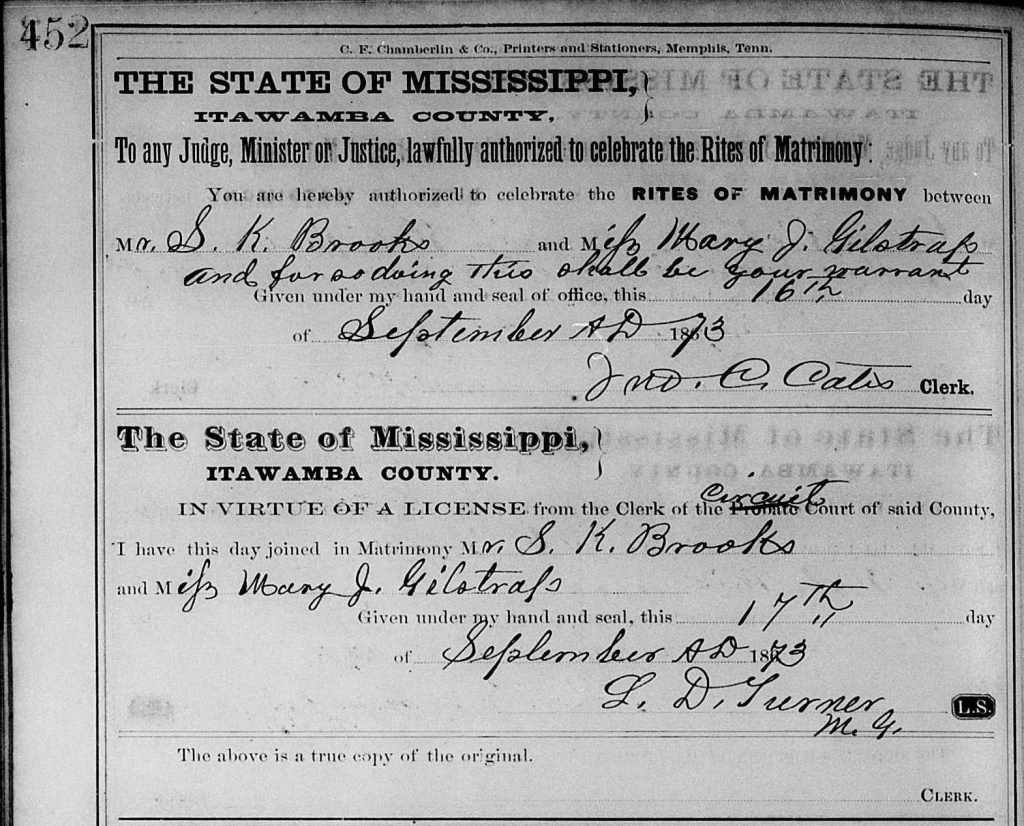 452
C. F. Chamberlin & Co., Printers and Stationers, Memphis, Tenn.
THE STATE OF MISSISSIPPI,
ITAWAMBA COUNTY,
To any Judge, Minister or Justice, lawfully authorized to celebrate the Rites of Matrimony:
You are hereby authorized to celebrate the RITES OF MATRIMONY between
Mr. S. K. Brooks and Miss Mary J. Gilstrap
and for so doing this shall be your warrant
Given under my hand and seal of office, this 16th day
of September AD 1873
Jno. C. Cates Clerk.
The State of Mississippi,
ITAWAMBA COUNTY.
circuit
IN VIRTUE OF A LICENSE from the Clerk of the Probate Court of said County,
I have this day joined in Matrimony Mr. S. K. Brooks
and Miss Mary J. Gilstrap
Given under my hand and seal, this 17th day
of September AD 1873
L. D. Turner L.S.
M. G.
The above is a true copy of the original.
CLERK.